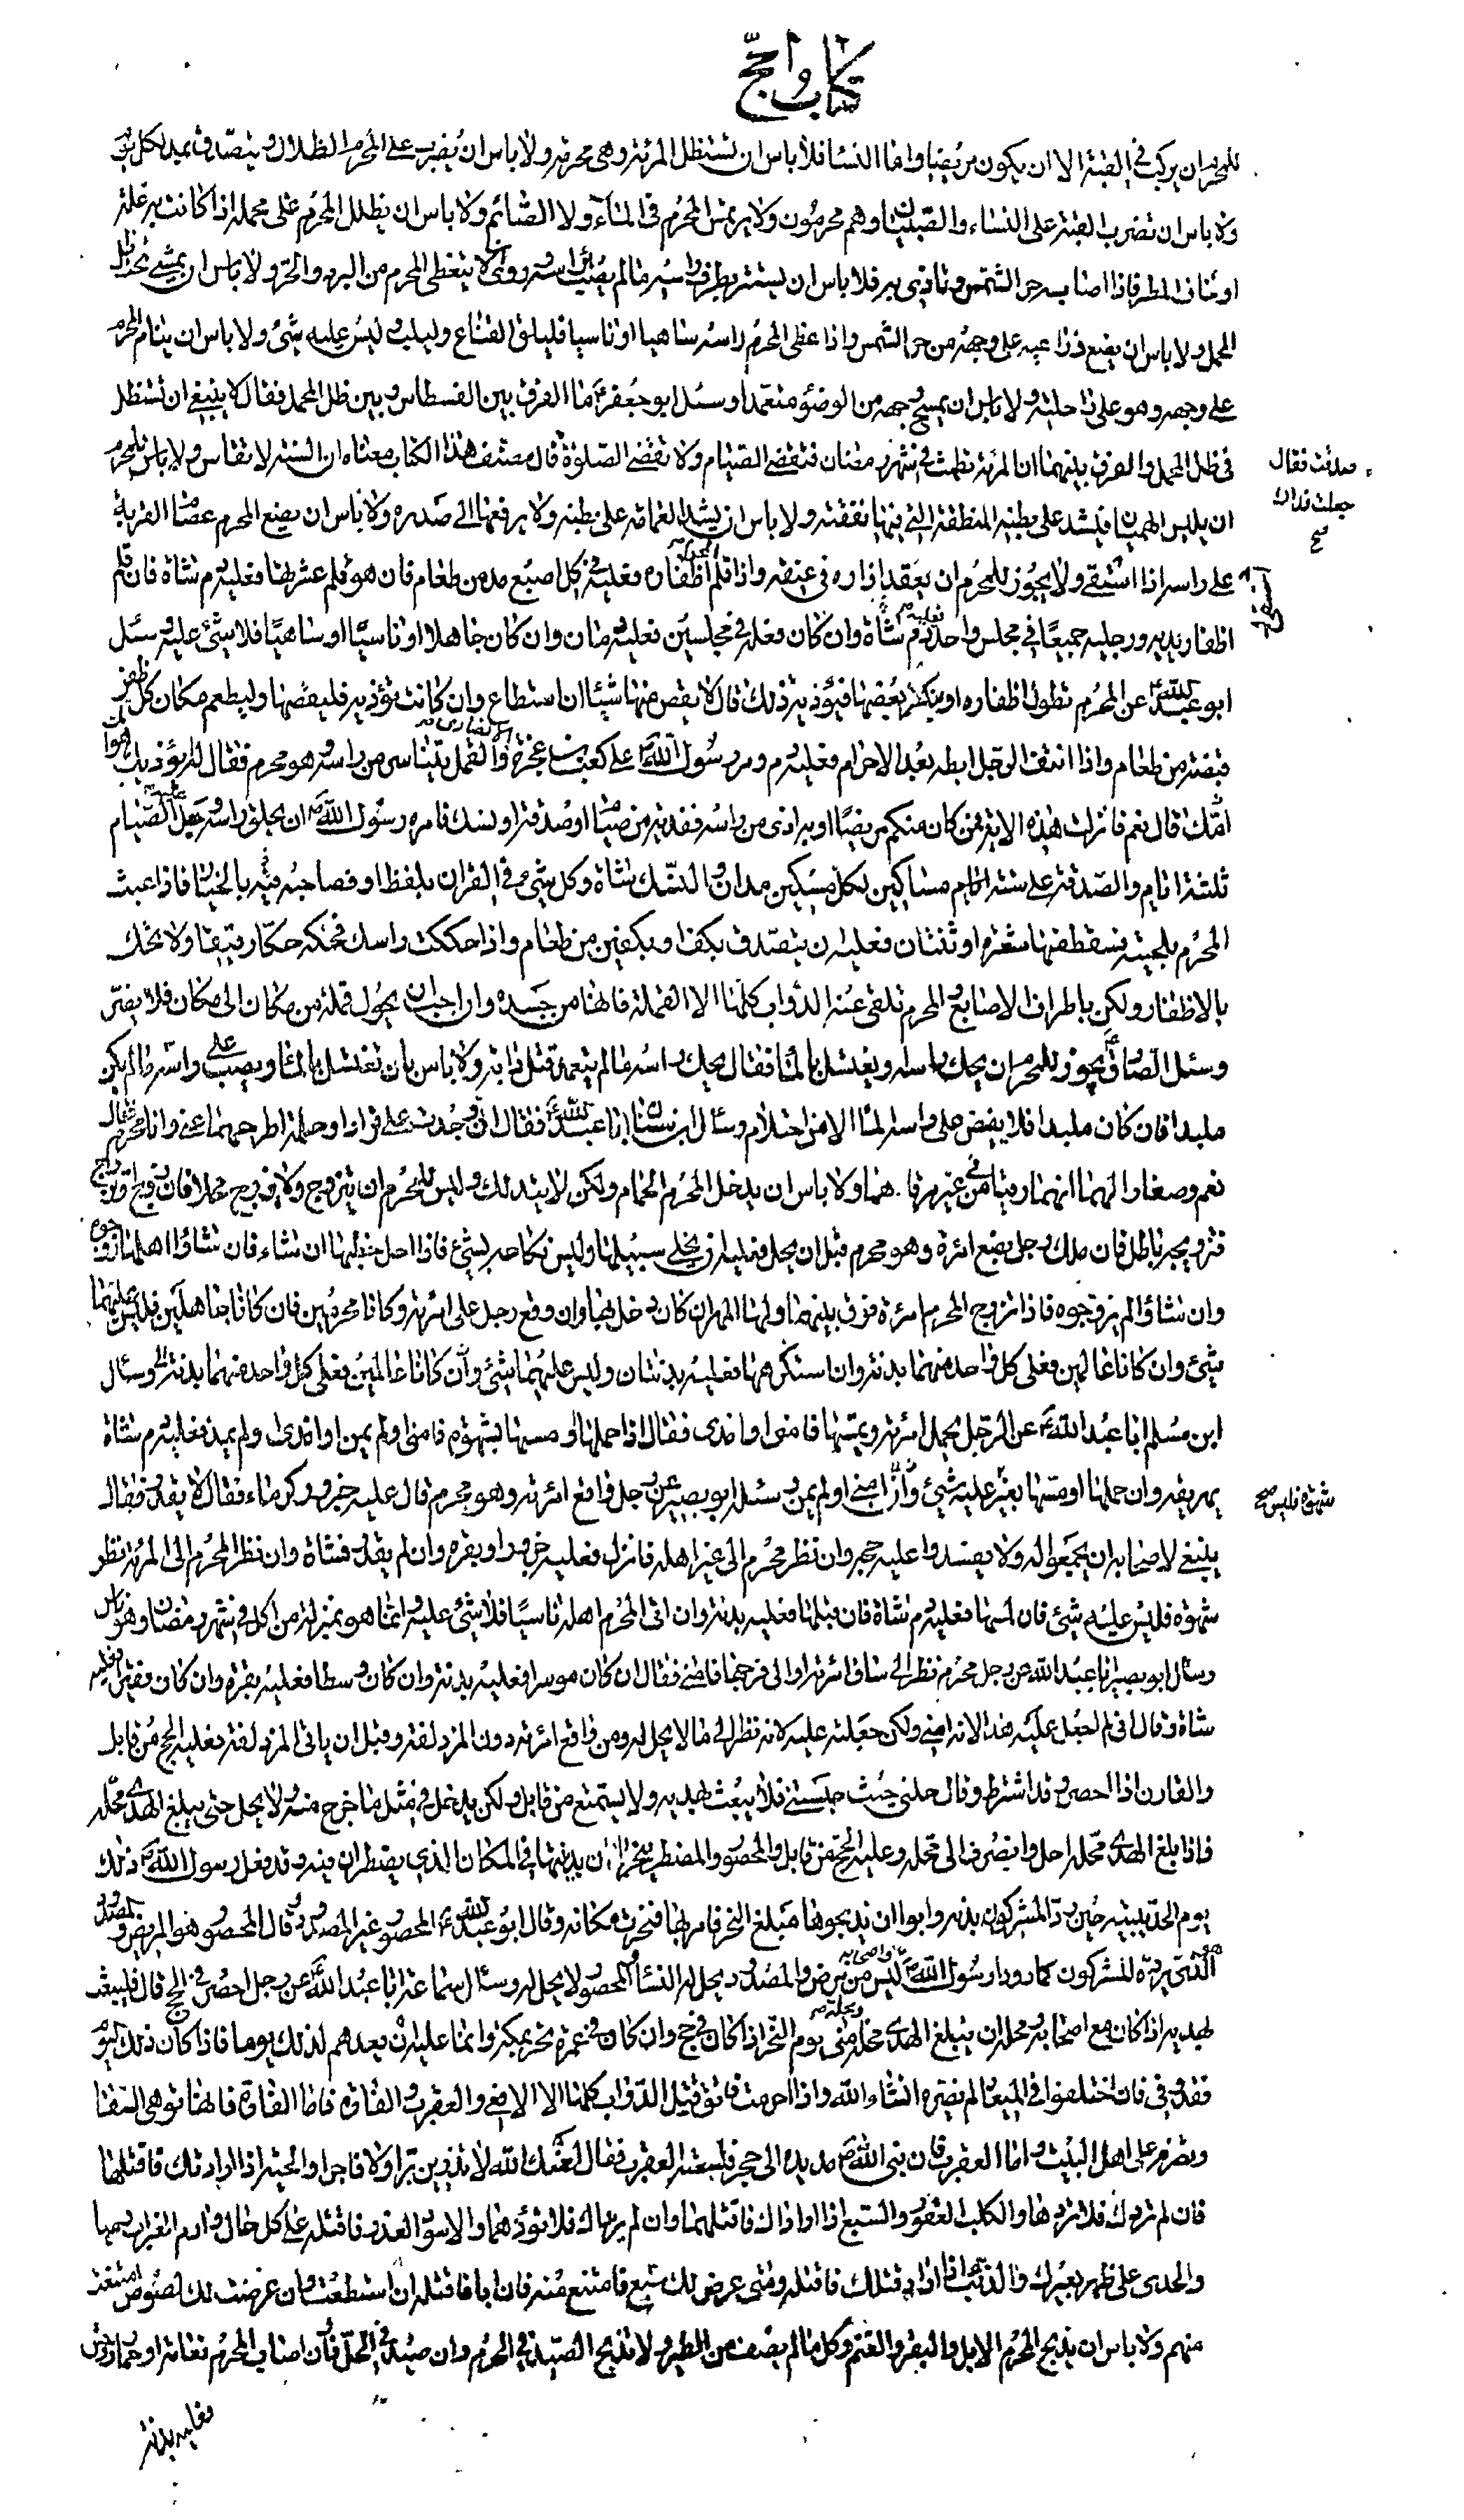 كتاب الحج
للمحرم ان يركب في القبة الا ان يكون مريضا واما النساء فلا باس ان تستظل المرئة وهى محرمة ولا باس ان يضرب على المحرم الظلال ويتصدق بمد لكل يوم
ولا باس ان تضرب القبة على النساء والصبيان وهم محرمون ولا يرتمس المحرم في الماء ولا الصائم ولا باس ان يظلل المحرم على محمله اذا كانت به علة
او خاف المطر فاذا اصابه حر الشمس وتاذى به فلا باس ان يستتر بطرف ثوبه ما لم يصب راسه وروى لا يتغطى المحرم من البرد والحر ولا باس ان يمشى تحت ظل
المحمل ولا باس ان يضع ذراعيه على وجهه من حر الشمس واذا غطى المحرم راسه ساهيا او ناسيا فليلق القناع وليلب وليس عليه شئ ولا باس ان ينام المحرم
على وجهه وهو على راحلته ولا باس ان يمسح وجهه من الوضوء متعمدا وسئل ابو جعفر ع ما الفرق بين الفسطاس وبين ظل المحمل فقال لا ينبغى ان تستظل
في ظل المحمل والفرق بينهما ان المرئة تطمث في شهر رمضان فتقضى الصيام ولا تقضى الصلوة قال مصنف هذا الكتاب معناه ان السنة لا تقاس ولا باس للمحرم
صدقت فقال جعلت فداك صح
ان يلبس الهميان فيشد على بطنه المنطقة التى فيها نفقته ولا باس ان يشد العمامة على بطنه ولا يرفعها الى صدره ولا باس ان يضع المحرم عصام القربة
على راسه اذا استقى ولا يجوز للمحرم ان يعقد ازاره في عنقه واذا قلم المحرم اظفاره فعليه في كل اصبع مد من طعام فان هو قلم عشرتها فعليه دم شاة فان قلم
اظفار يديه ورجليه جميعا في مجلس واحد فعليه دم شاة وان كان فعله في مجلسين فعليه دمان وان كان جاهلا او ناسيا او ساهيا فلا شئ عليه وسئل
ابو عبد الله ع عن المحرم تطول اظفاره او ينكسر بعضها فيؤذيه ذلك قال لا يقص منها شيئا ان استطاع وان كانت تؤذيه فليقصها وليطعم مكان كل ظفر
قبضة من طعام واذا انتف الرجل ابطه بعد الاحرام فعليه دم ومر رسول الله ص على كعب بن عجرة الانصارى والقمل يتناثر من راسه وهو محرم فقال له ايؤذيك هوامك
قال نعم فانزلت هذه الاية فمن كان منكم مريضا او به اذى من راسه ففدية من صيام او صدقة او نسك فامره رسول الله ص ان يحلق راسه وجعل عليه الصيام
ثلثة ايام والصدقة على ستة مساكين لكل مسكين مدان والنسك شاة وكل شئ في القران بلفظ او فصاحبه فيه بالخيار فاذا عبث
المحرم بلحيته فسقط منها شعرة او ثنتان فعليه ان يتصدق بكف او بكفين من طعام واذا حككت راسك فحكه حكا رفيقا ولا تحك
بالاظفار ولكن باطراف الاصابع والمحرم تلقى عنه الدواب كلها الا القملة فانها من جسده وان احب ان يحول قملة من مكان الى مكان فلا يضر
وسئل الصادق ع يجوز للمحرم ان يحك راسه ويغتسل بالماء فقال يحك راسه ما لم يتعمد قتل دابة ولا باس بان تغتسل بالماء ويصب على راسه ما لم يكن
ملبدا فان كان ملبدا فلا يفيض على راسه الماء الا من احتلام وسأل ابن سنان ابا عبد الله ع فقال اني وجدت على قرادا او حلمة اطرحهما عنى وانا محرم قال
نعم وصغار الهما انهما رقيا في غير مرقاهما ولا باس ان يدخل المحرم الحمام ولكن لا يتدلك وليس للمحرم ان يتزوج ولا يزوج محلا فان زوج او تزوج
فتزويجه باطل فان ملك رجل بضع امرئة وهو محرم قبل ان يحل فعليه ان يخلى سبيلها وليس نكاحه بشئ فاذا احل خطبها ان شاء فان شاؤا اهلها زوجوه
وان شاؤا لم يزوجوه فاذا تزوج المحرم امرئة فرق بينهما ولها المهر ان كان دخل بها وان وقع رجل على امرئته وكانا محرمين فان كانا جاهلين فليس عليهما
شئ وان كانا عالمين فعلى كل واحد منهما بدنة وان استكرهها فعليه بدنتان وليس عليها شئ وان كانا عالمين فعلى كل واحد منهما بدنة وسأل
ابن مسلم ابا عبد الله ع عن الرجل يحمل امرئته ويمسها فامنى او امذى فقال اذا حملها او مسها بشهوة فامنى ولم يمن او امذى ولم يمذ فعليه دم شاة
يهريقه وان حملها او مسها بغير شهوة فليس عليه شئ وان امنى او لم يمن وسئله ابو بصير عن رجل واقع امرئته وهو محرم قال عليه جزور كوماء فقال لا يقدر فقال
ينبغى لاصحابه ان يجمعوا له ولا يفسدوا عليه حجه وان نظر محرم الى غير اهله فانزل فعليه جزور او بقرة وان لم يقدر فشاة وان نظر المحرم الى المرئة نظر
شهوة فليس عليه شئ فان لمسها فعليه دم شاة فان قبلها فعليه بدنة وان اتى المحرم اهله ناسيا فلا شئ عليه وانما هو بمنزلة من اكل في شهر رمضان وهو ناس
وسأل ابو بصير ابا عبد الله عن رجل محرم نظر الى ساق امرئة او الى فرجها فامنى فقال ان كان موسرا فعليه بدنة وان كان وسطا فعليه بقرة وان كان فقيرا فعليه
شاة وقال انى لم اجعل عليه هذا لانه امنى ولكن جعلته عليه لانه نظر الى ما لا يحل له ومن واقع امرئته دون المزدلفة وقبل ان ياتى المزدلفة فعليه الحج من قابل
والقارن اذا احصر وقد اشترط وقال حلنى حيث حبستنى فلا يبعث بهديه ولا يستمتع من قابل ولكن يدخل في مثل ما خرج منه ولا يحل حتى يبلغ الهدى محله
فاذا بلغ الهدى محله احل وانصرف الى محله وعليه الحج من قابل والمحصور والمضطر ينحران بدنتهما في المكان الذى يضطران فيه وقد فعل رسول الله ص ذلك
يوم الحديبية حين رد المشركون بدنه وابوا ان يذبحوها مبلغ النحر فامر بها فنحرت مكانه وقال ابو عبد الله ع المحصور غير المصدود وقال المحصور هو المريض والمصدود
هو الذى يرده المشركون كما ردوا رسول الله ص واصحابه ليس من مرض والمصدود يحل له النساء والمحصور لا يحل له وسأل سماعة ابا عبد الله ع عن رجل احصر في الحج قال فليبعث
بهديه اذا كان مع اصحابه ومحله ان يبلغ الهدى محله ومحله منى يوم النحر اذا كان في حج وان كان في عمرة نحر بمكة وانما عليه ان يعدهم لذلك يوما فاذا كان ذلك اليوم
فقد وفى فان اختلفوا في الميعاد لم يضره انشاء الله واذا احرمت فاتق قتل الدواب كلها الا الافعى والعقرب والفارة فاما الفارة فانها توهى السقا
وتضرم على اهل البيت واما العقرب فان نبى الله ص مد يده الى حجر فلسعته العقرب فقال لعنك الله لا تذرين برا ولا فاجرا والحية اذا ارادتك فاقتلها
فان لم تردك فلا تردها والكلب العقور والسبع اذا ارادك فاقتلهما وان لم يريداك فلا تؤذهما والاسود الغدر فاقتله على كل حال وارم الغراب رميا
والحدى على ظهر بعيرك والذئب اذا اراد قتلك فاقتله ومتى عرض لك سبع فامتنع منه فان ابى فاقتله ان استطعت وان عرضت لك لصوص امتنعت
منهم ولا باس ان يذبح المحرم الابل والبقر والغنم وكل ما لم يصف من الطير ولا تذبح الصيد في الحرم وان صيد في الحل فان اصاب المحرم نعامة او حمار وحش
فعليه بدنة